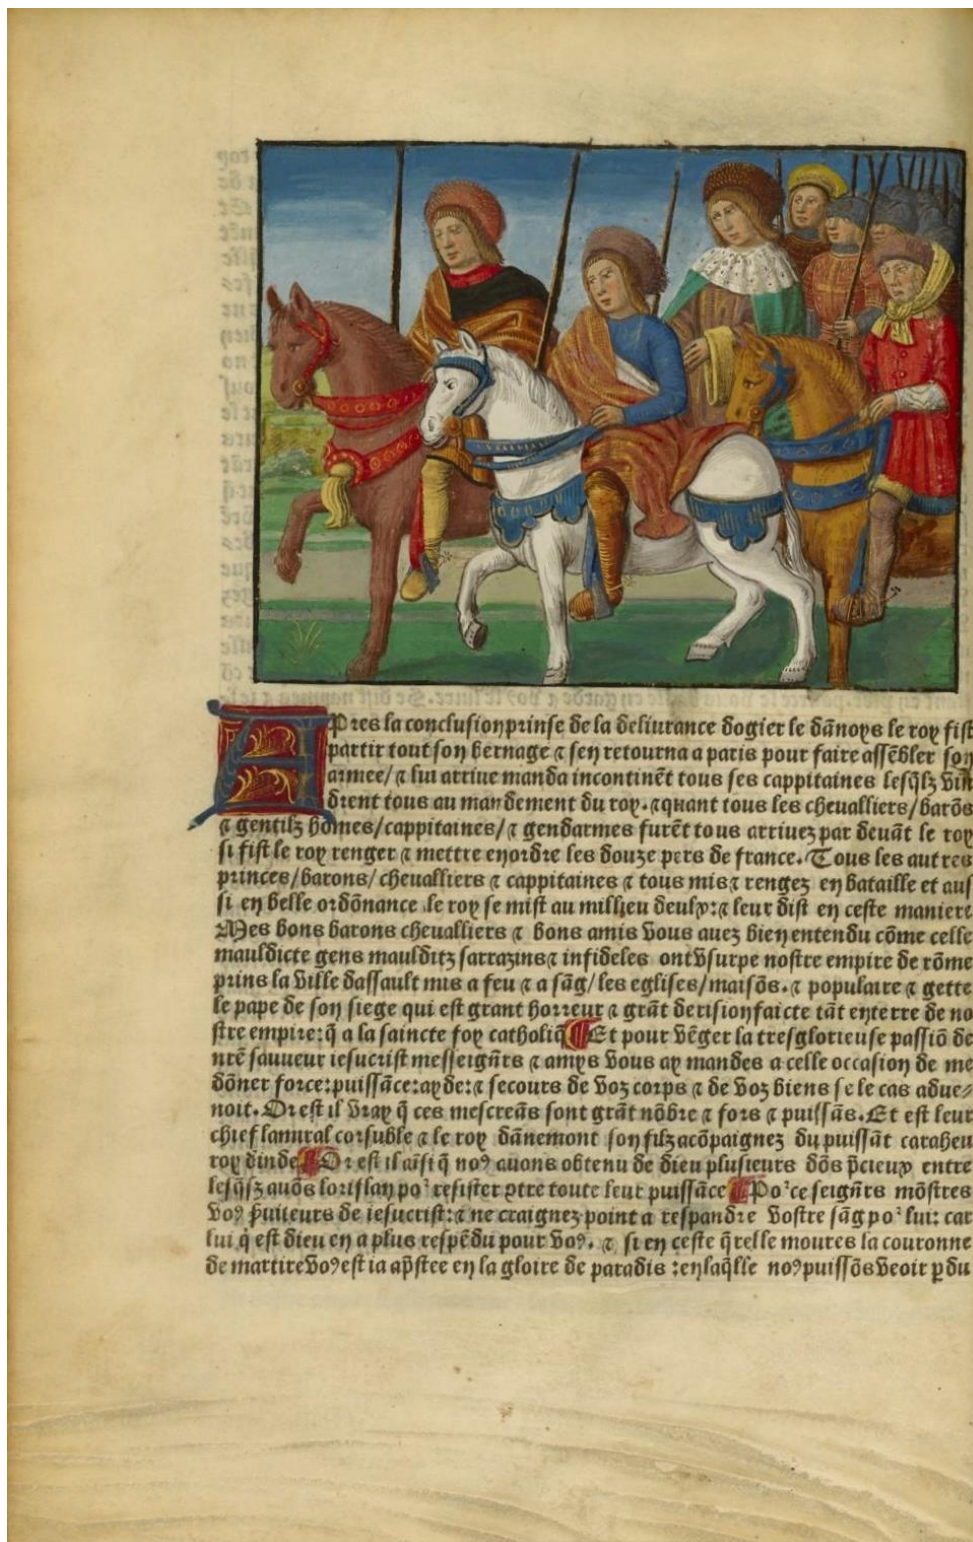 APres la conclusion prinse de la deliurance dogier le dãnoys le roy fist
partir tout son bernage ⁊ sen retourna a paris pour faire assẽbler son
armee/⁊ lui arriue manda incontinẽt tous ses cappitaines lesq̃lz vin
drent tous au mandement du roy.⁊quant tous les cheualliers/barõs
⁊ gentilz hõmes/cappitaines/⁊ gendarmes furẽt tous arriuez par deuãt le roy
si fist le roy renger ⁊ mettre en ordre les douze pers de france. Tous les autres
princes/barons/cheualliers ⁊ cappitaines ⁊ tous mis⁊ rengez en bataille et aus
si en belle ordõnance le roy se mist au millieu deulx:⁊ leur dist en ceste maniere
Mes bons barons cheualliers ⁊ bons amis vous auez bien entendu cõme celle
mauldicte gens maulditz sarrazins⁊ infideles ont vsurpe nostre empire de rõme
prins la ville dassault mis a feu ⁊ a sãg/les eglises/maisõs.⁊ populaire ⁊ gette
le pape de son siege qui est grant horreur ⁊ grãt derision faicte tãt en terre de no
stre empire:q̃ a la saincte foy catholiq̃ ¶Et pour vẽger la tresglorieuse passiõ de
nr̃e sauueur iesucrist messeigñrs ⁊ amys vous ay mandes a celle occasion de me
dõner force:puissãce:ayde:⁊ secours de voz corps ⁊ de voz biens se le cas adue⸗
noit. Or est il vray q̃ ces mescreãs sont grãt nõbre ⁊ fors ⁊ puissãs. Et est leur
chief lamiral corsuble ⁊ le roy dãnemont son filz acõpaignez du puissãt caraheu
roy dinde ¶Or est il aĩsi q̃ noꝰ auons obtenu de dieu plusieurs dõs p̃cieux entre
lesq̃lz auõs loriflan poᷣ resister ꝯtre toute leur puissãce ¶Poᷣce seigñrs mõstres
voꝰ p̃uiteurs de iesucrist:⁊ ne craignez point a respandre vostre sãg poᷣ lui: car
lui q̃ est dieu en a plus respẽdu pour voꝰ. ⁊ si en ceste q̃relle moures la couronne
de martire voꝰ est ia ap̃stee en la gloire de paradis :en laq̃lle noꝰ puissõs veoir ꝑdu